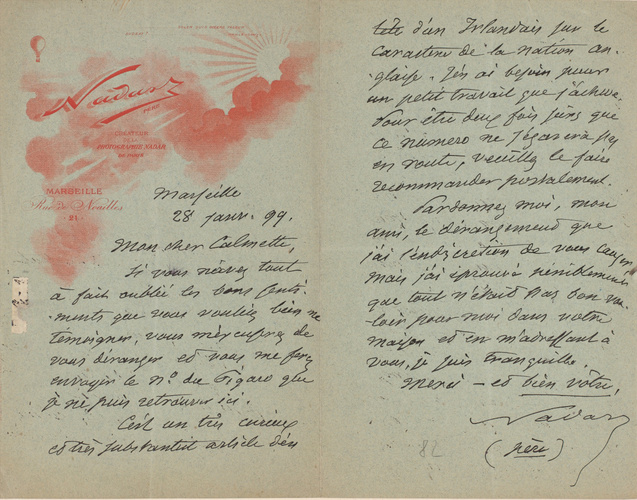 Nadar
PÈRE
CRÉATEUR
DE LA
PHOTOGRAPHIE NADAR
DE PARIS
MARSEILLE
Rue de Noailles
21
Marseille
28 janv. 99.
Mon cher Calmette,
Si vous n'avez tout
à fait oublié les bons senti-
ments que vous vouliez bien me
témoigner, vous m'excuserez de
vous déranger et vous me ferez
envoyer le nº du Figaro que
je ne puis retrouver ici.
C'est un très curieux
et très substantiel article d'en
tête d'un Irlandais sur le
caractère de la nation an-
glaise. J'en ai besoin pour
un petit travail que j'achève.
Pour être deux fois sûrs que
ce numéro ne s'égarera pas
en route, veuillez le faire
recommander postalement.
Pardonnez moi, mon
ami, le dérangement que
j'ai l'indiscrétion de vous causer
mais j'ai éprouvé péniblement
que tout n'était pas bon vou-
loir pour moi dans votre
maison et en m'adressant à
vous, je suis tranquille.
Merci – et bien vôtre,
Nadar
(père)
82